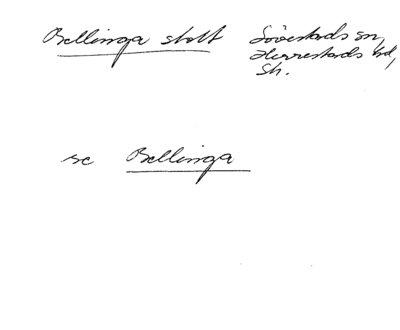 Bellinga slott Sövestads sn,
Herrestads hd,
Sk.
se Bellinga